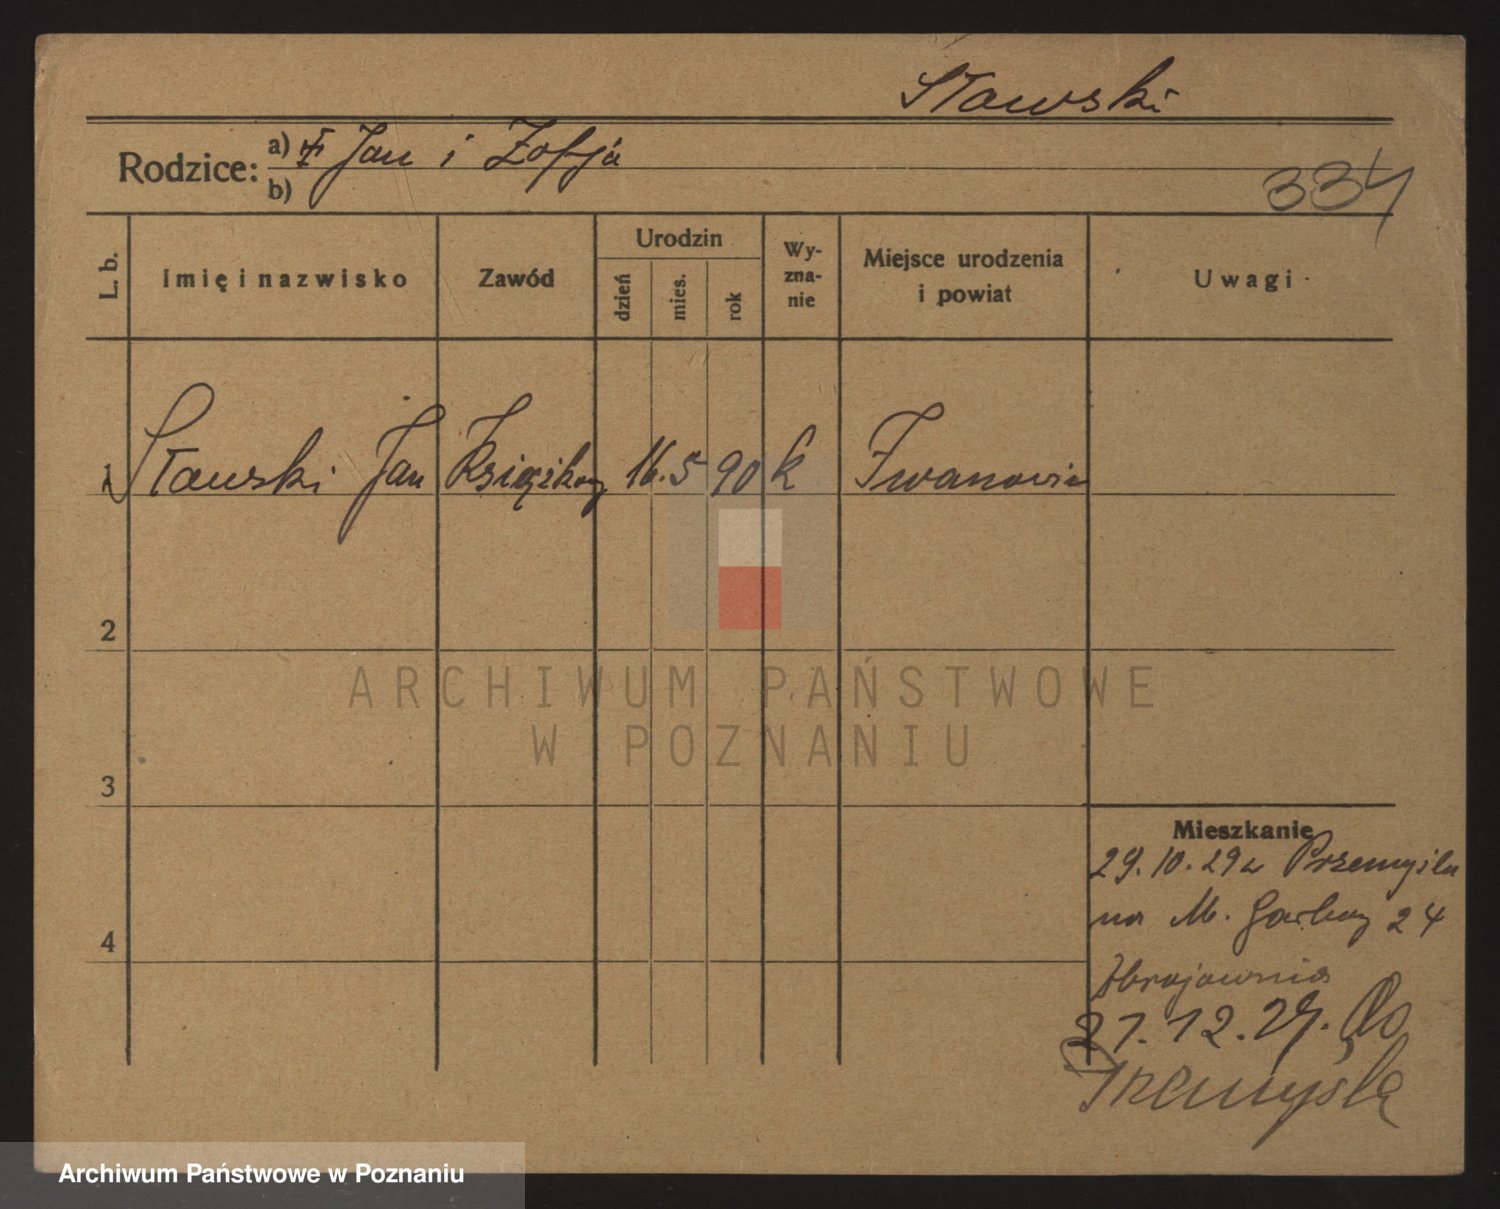 Stawski
Rodzice: a) Jan i Zofja
b)
334
L. b. Imię i nazwisko Zawód Urodzin dzień mies. rok Wy-zna-nie Miejsce urodzenia i powiat Uwagi
1 Stawski Jan Księżkowy 16. 5 90 k Iwanowice
2
3
4
Mieszkanie
29. 10. 29 z Przemyśla
na M. Garbary 24
Zbrojownia
21. 12. 29. do
Przemyśla
ARCHIWUM PAŃSTWOWE
W POZNANIU
Archiwum Państwowe w Poznaniu